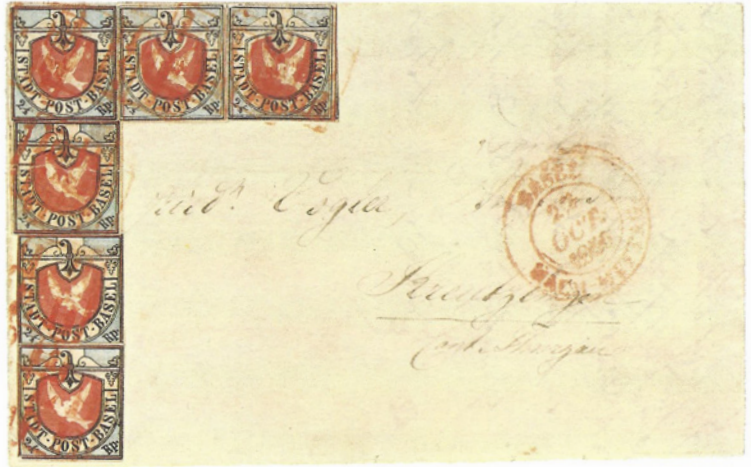 STADT·POST·BASEL
2½ Rp.
STADT·POST·BASEL
2½ Rp.
STADT·POST·BASEL
2½ Rp.
STADT·POST·BASEL
2½ Rp.
STADT·POST·BASEL
2½ Rp.
STADT·POST·BASEL
2½ Rp.
BASEL
OCT.
NACHMITTAG
Kreutzlingen
Cant. Thurgau